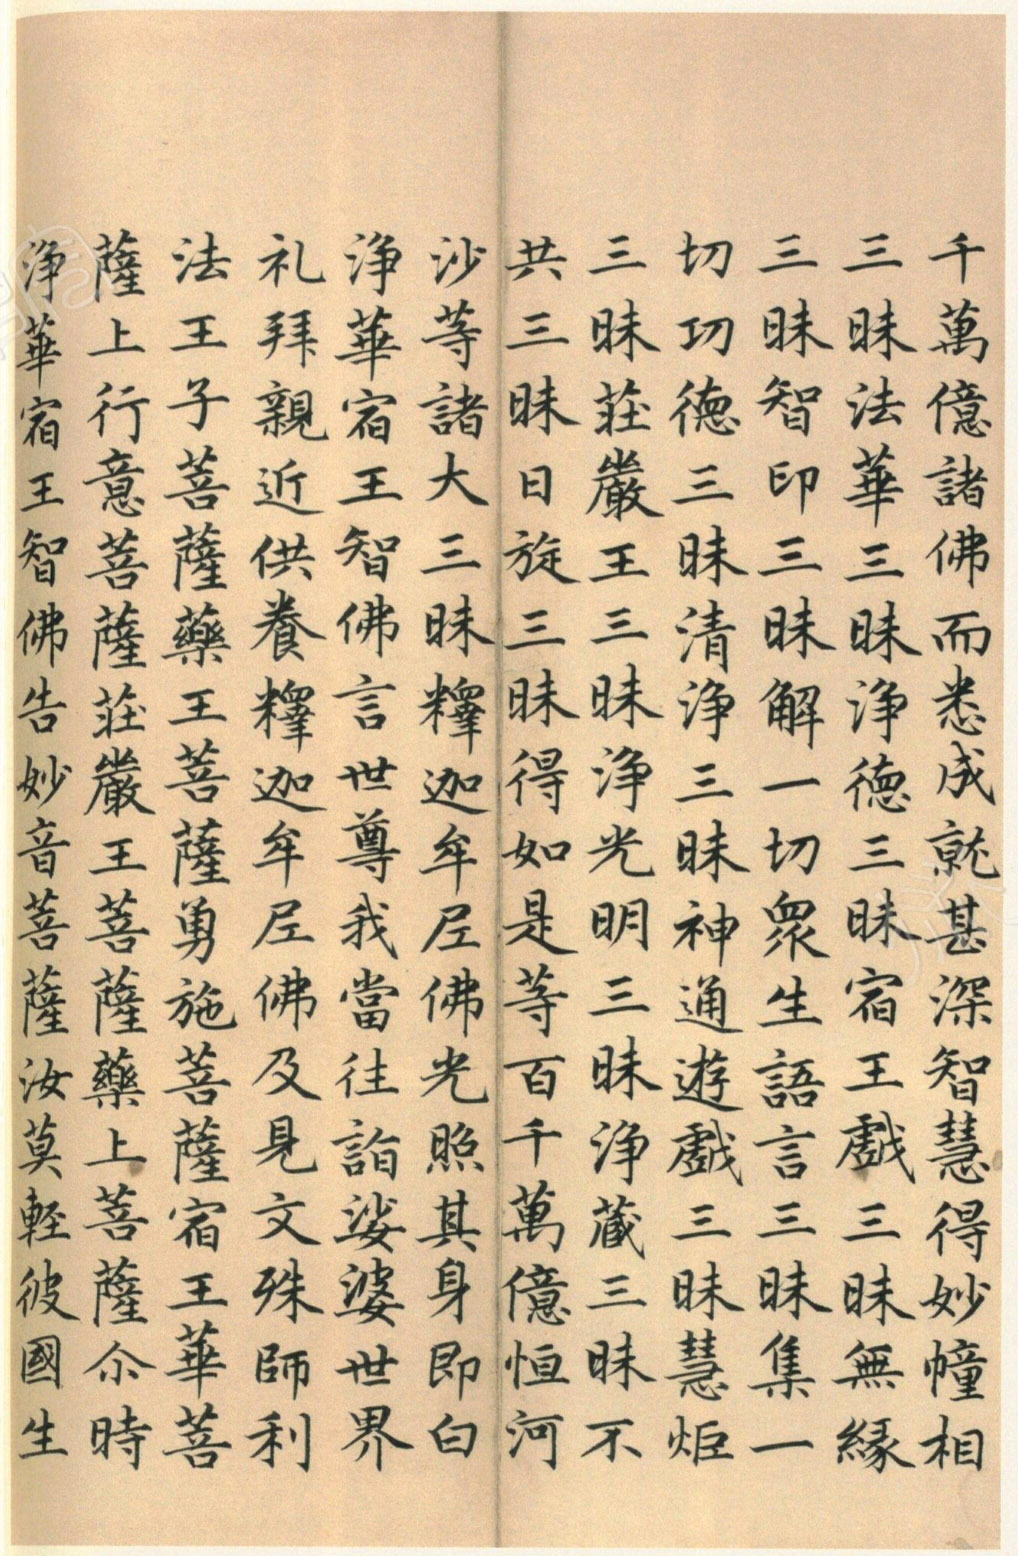 千萬億諸佛而悉成就甚深智慧得妙幢相
三昧法華三昧淨德三昧宿王戲三昧無緣
三昧智印三昧解一切衆生語言三昧集一
切功德三昧清淨三昧神通遊戲三昧慧炬
三昧莊嚴王三昧淨光明三昧淨藏三昧不
共三昧日旋三昧得如是等百千萬億恒河
沙等諸大三昧釋迦牟尼佛光照其身即白
淨華宿王智佛言世尊我當往詣娑婆世界
礼拜親近供養釋迦牟尼佛及見文殊師利
法王子菩薩藥王菩薩勇施菩薩宿王華菩
薩上行意菩薩莊嚴王菩薩藥上菩薩尒時
淨華宿王智佛告妙音菩薩汝莫輕彼國生